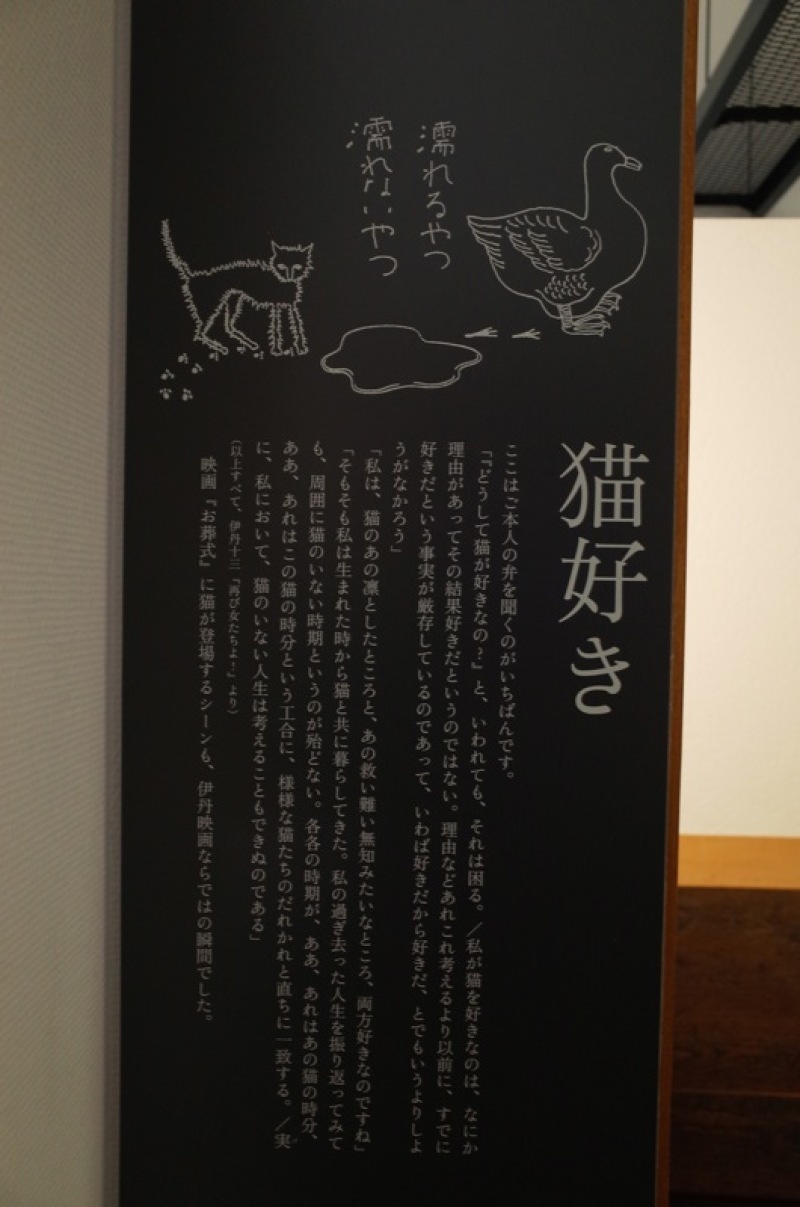 濡れるやつ
濡れないやつ
猫好き
ここはご本人の弁を聞くのがいちばんです。
「『どうして猫が好きなの?』と、いわれても、それは困る。／私が猫を好きなのは、なにか
理由があってその結果好きだというのではない。理由などあれこれ考えるより以前に、すでに
好きだという事実が厳存しているのであって、いわば好きだから好きだ、とでもいうよりしよ
うがなかろう」
「私は、猫のあの凛としたところと、あの救い難い無知みたいなところ、両方好きなのですね」
「そもそも私は生まれた時から猫と共に暮らしてきた。私の過ぎ去った人生を振り返ってみて
も、周囲に猫のいない時期というのが殆どない。各各の時期が、ああ、あれはあの猫の時分、
ああ、あれはこの猫の時分という工合に、様様な猫たちのだれかれと直ちに一致する。／実
に、私において、猫のいない人生は考えることもできぬのである」
（以上すべて、伊丹十三『再び女たちよ！』より）
映画『お葬式』に猫が登場するシーンも、伊丹映画ならではの瞬間でした。